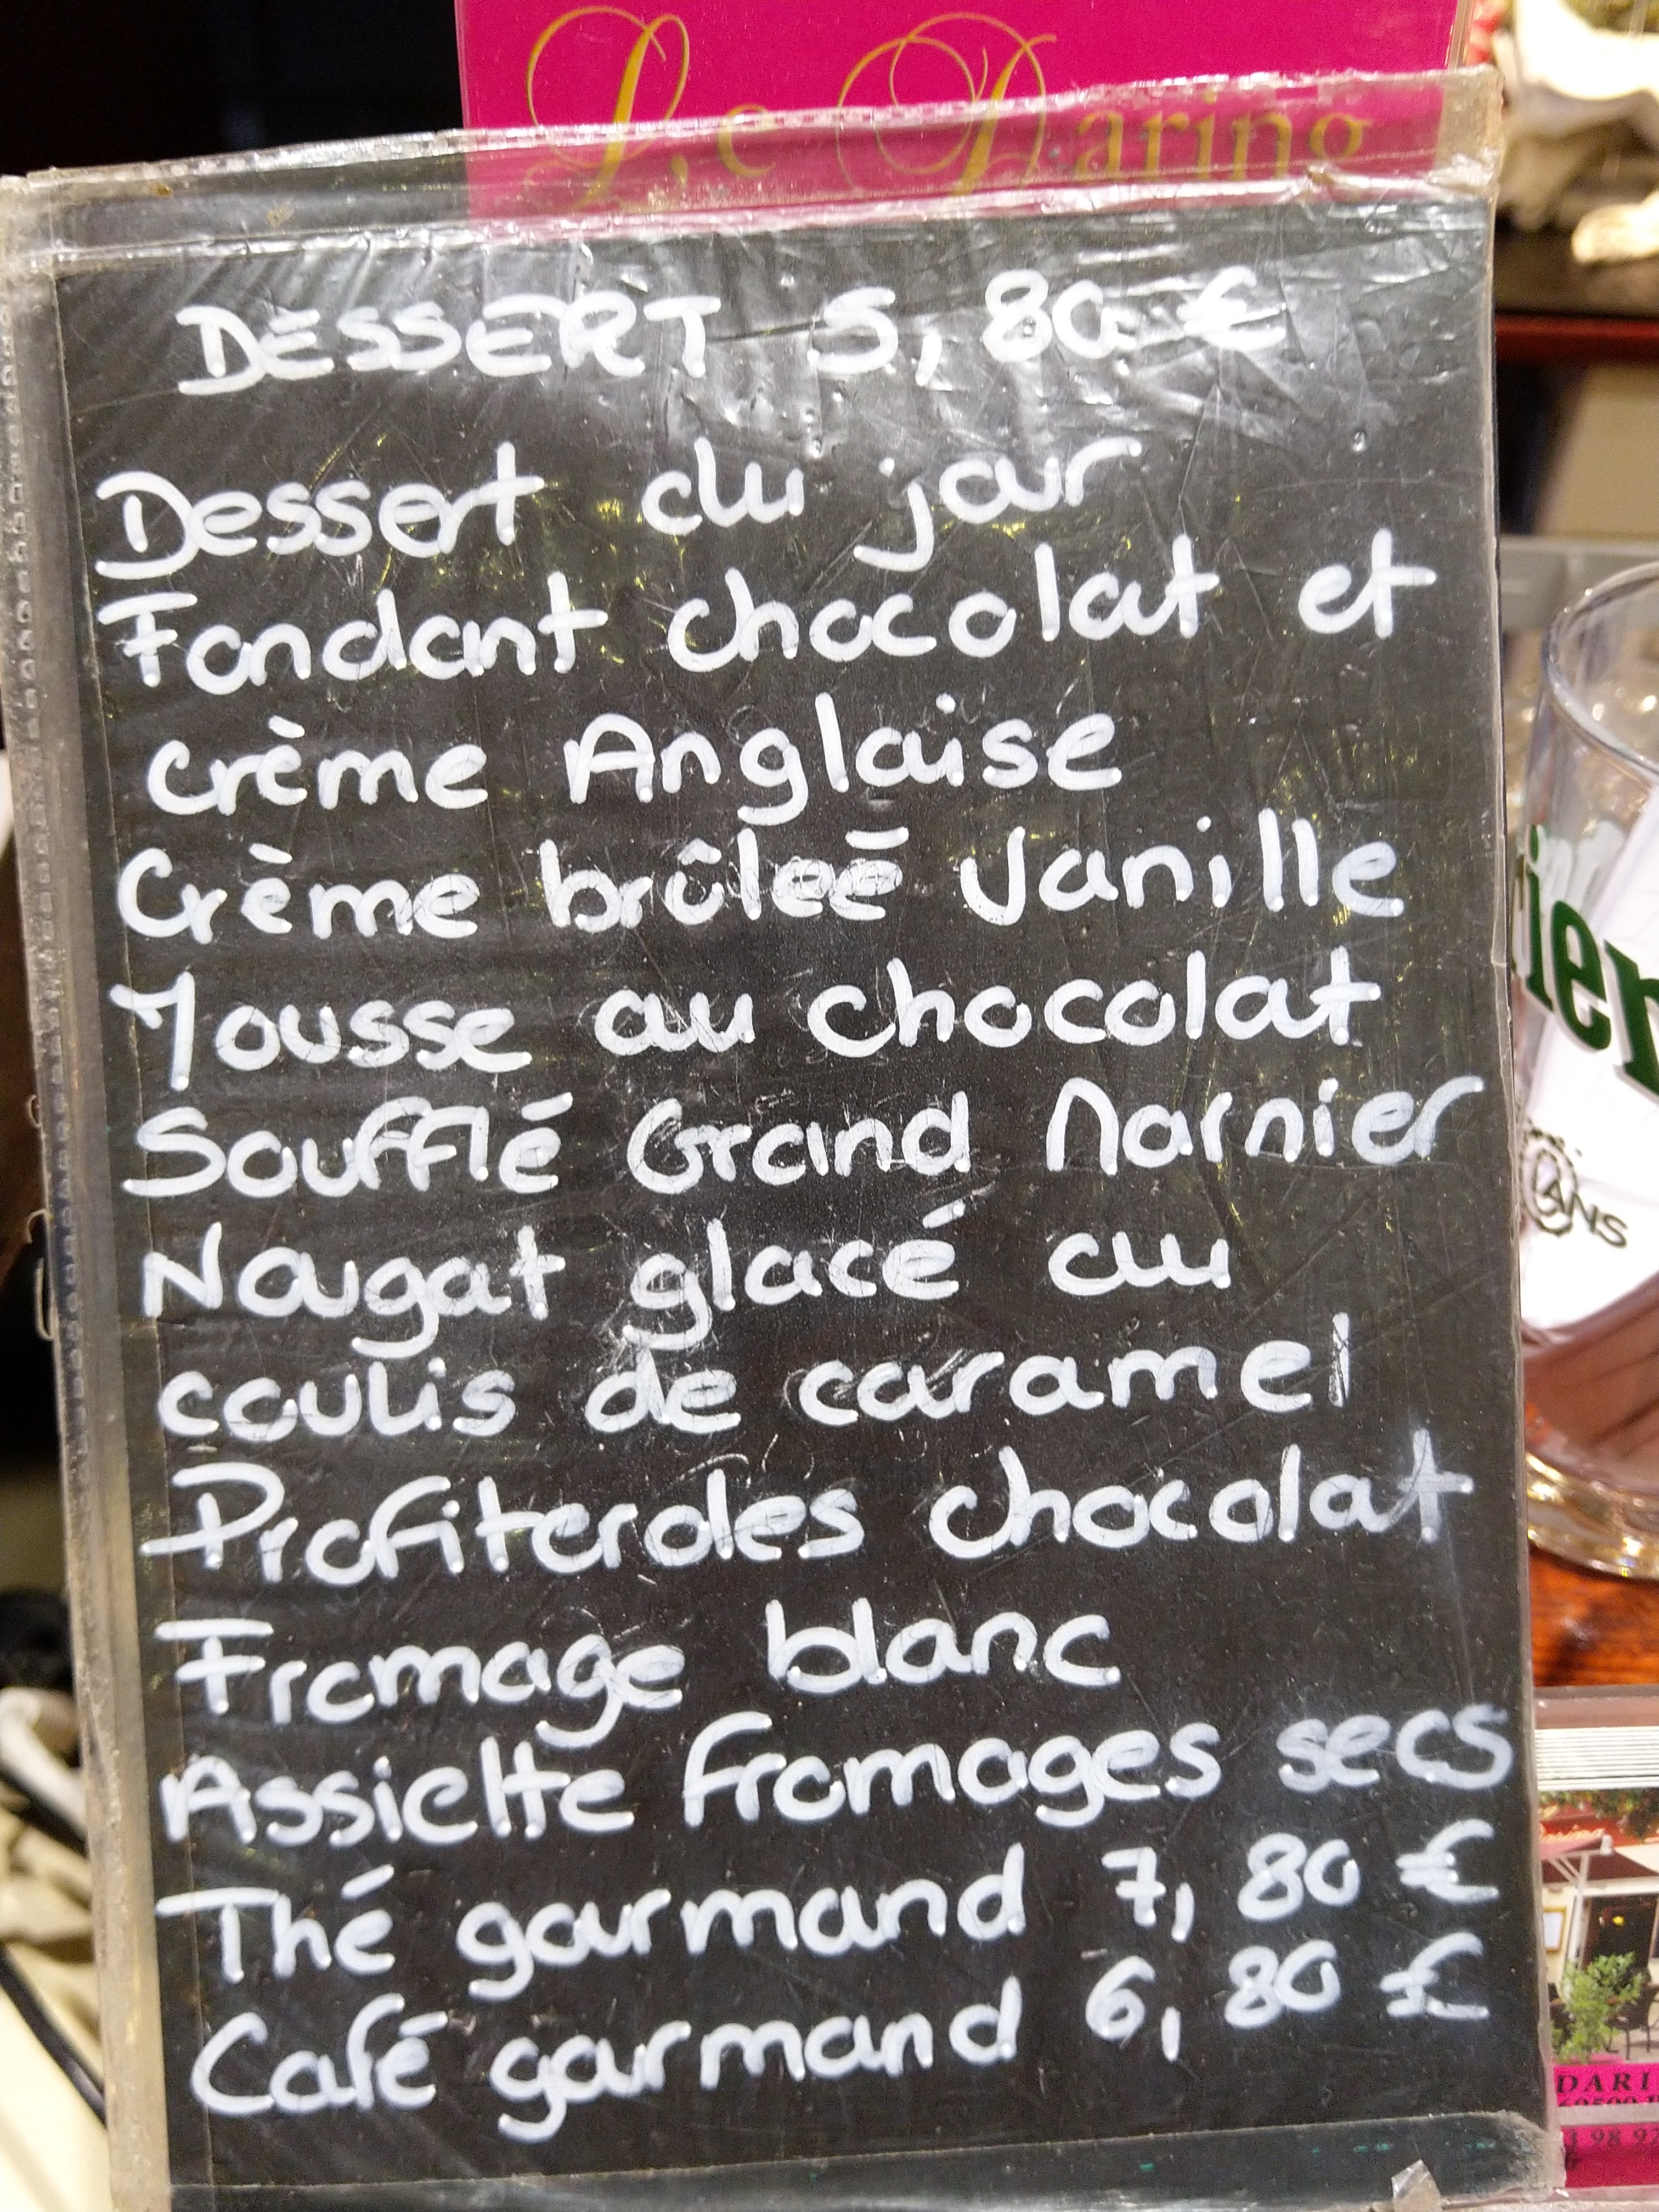 Le Daring
DESSERT 5,80 €
Dessert du jour
Fondant chocolat et
crème Anglaise
Crème brûleé Vanille
Mousse au chocolat
Soufflé Grand Marnier
Nougat glacé au
coulis de caramel
Profiteroles chocolat
Fromage blanc
Assiette fromages secs
Thé gourmand 7,80 €
Café gourmand 6,80 €
DARI